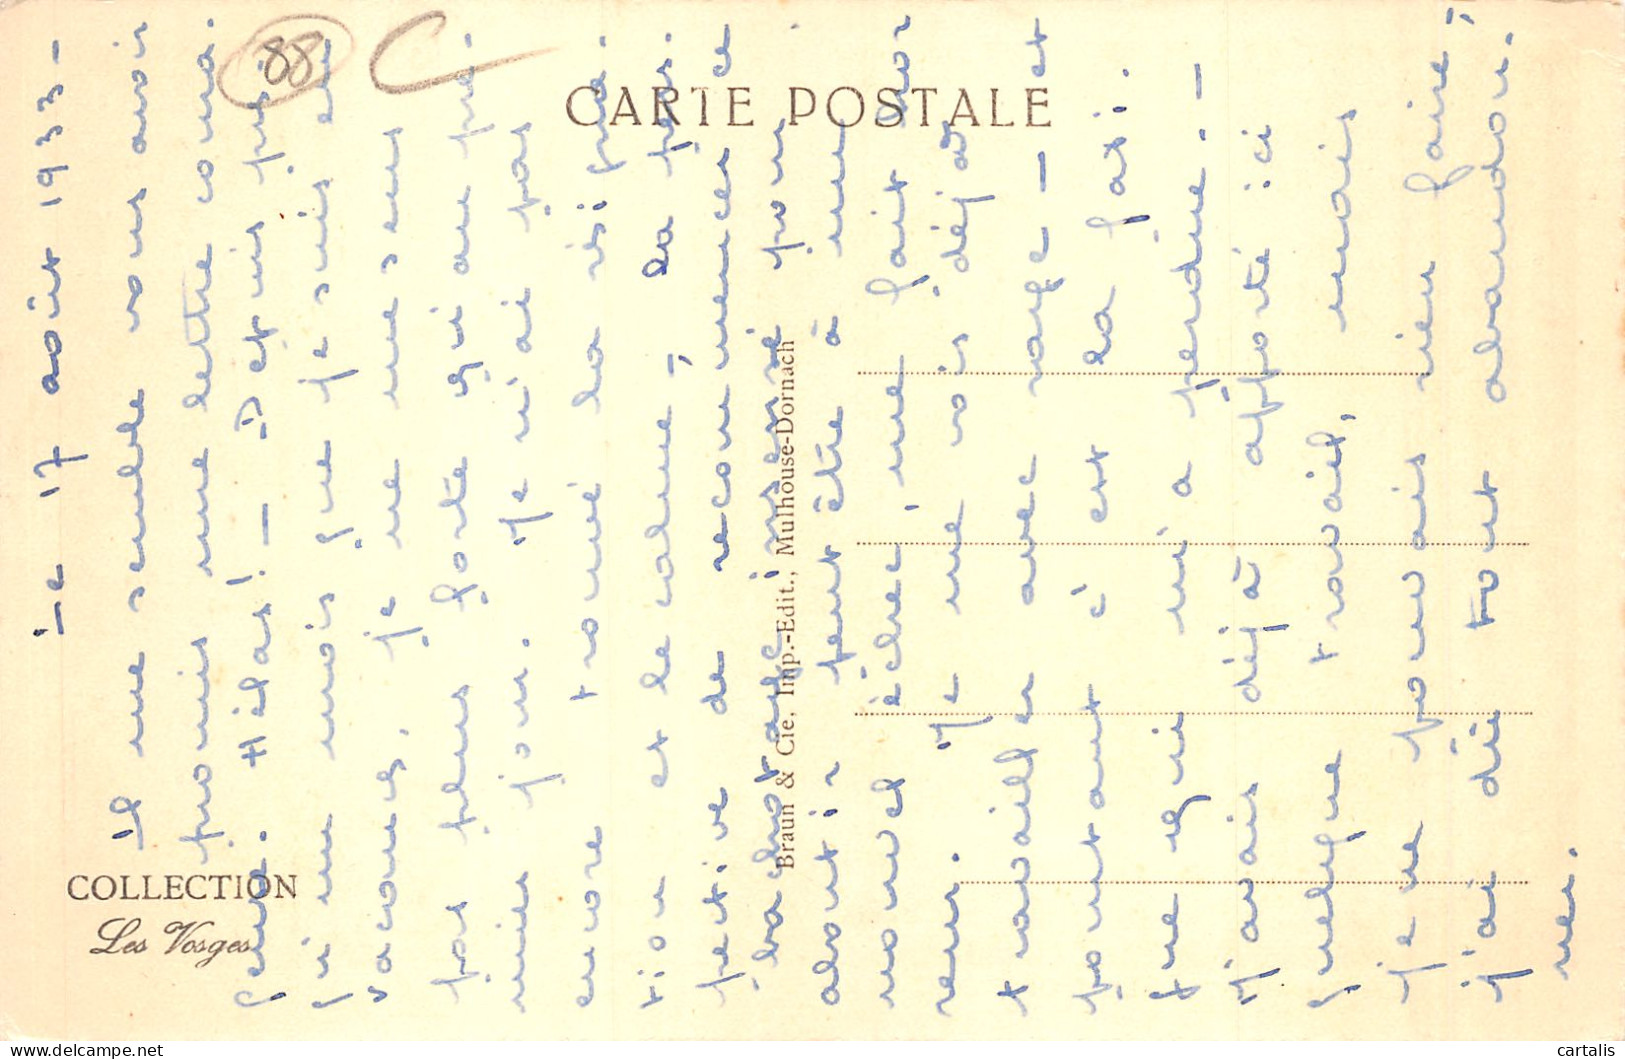 CARTE POSTALE
COLLECTION
Les Vosges
Braun & Cie, Imp.-Edit., Mulhouse-Dornach
88
Le 17 août 1933 –
Il me semble vous avoir
promis une lettre coura-
geuse. Hélas! – Depuis près
qu'un mois que je suis en
vacances, je ne me sens
pas plus forte qu'au pre-
mier jour. Je n'ai pas
encore trouvé la respira-
tion et le calme, – la pers-
pective de recommencer ce
barbotage insensé pour
aboutir peut être à un
nouvel échec, me fait hor-
reur. Je me vois déjà
travailler avec rage – et
pourtant c'est la foi
que qui m'a perdue. –
J'avais déjà apporté ici
quelque travail, mais
je ne pouvais rien faire,
j'ai dû tout abandon-
ner.
cartalis